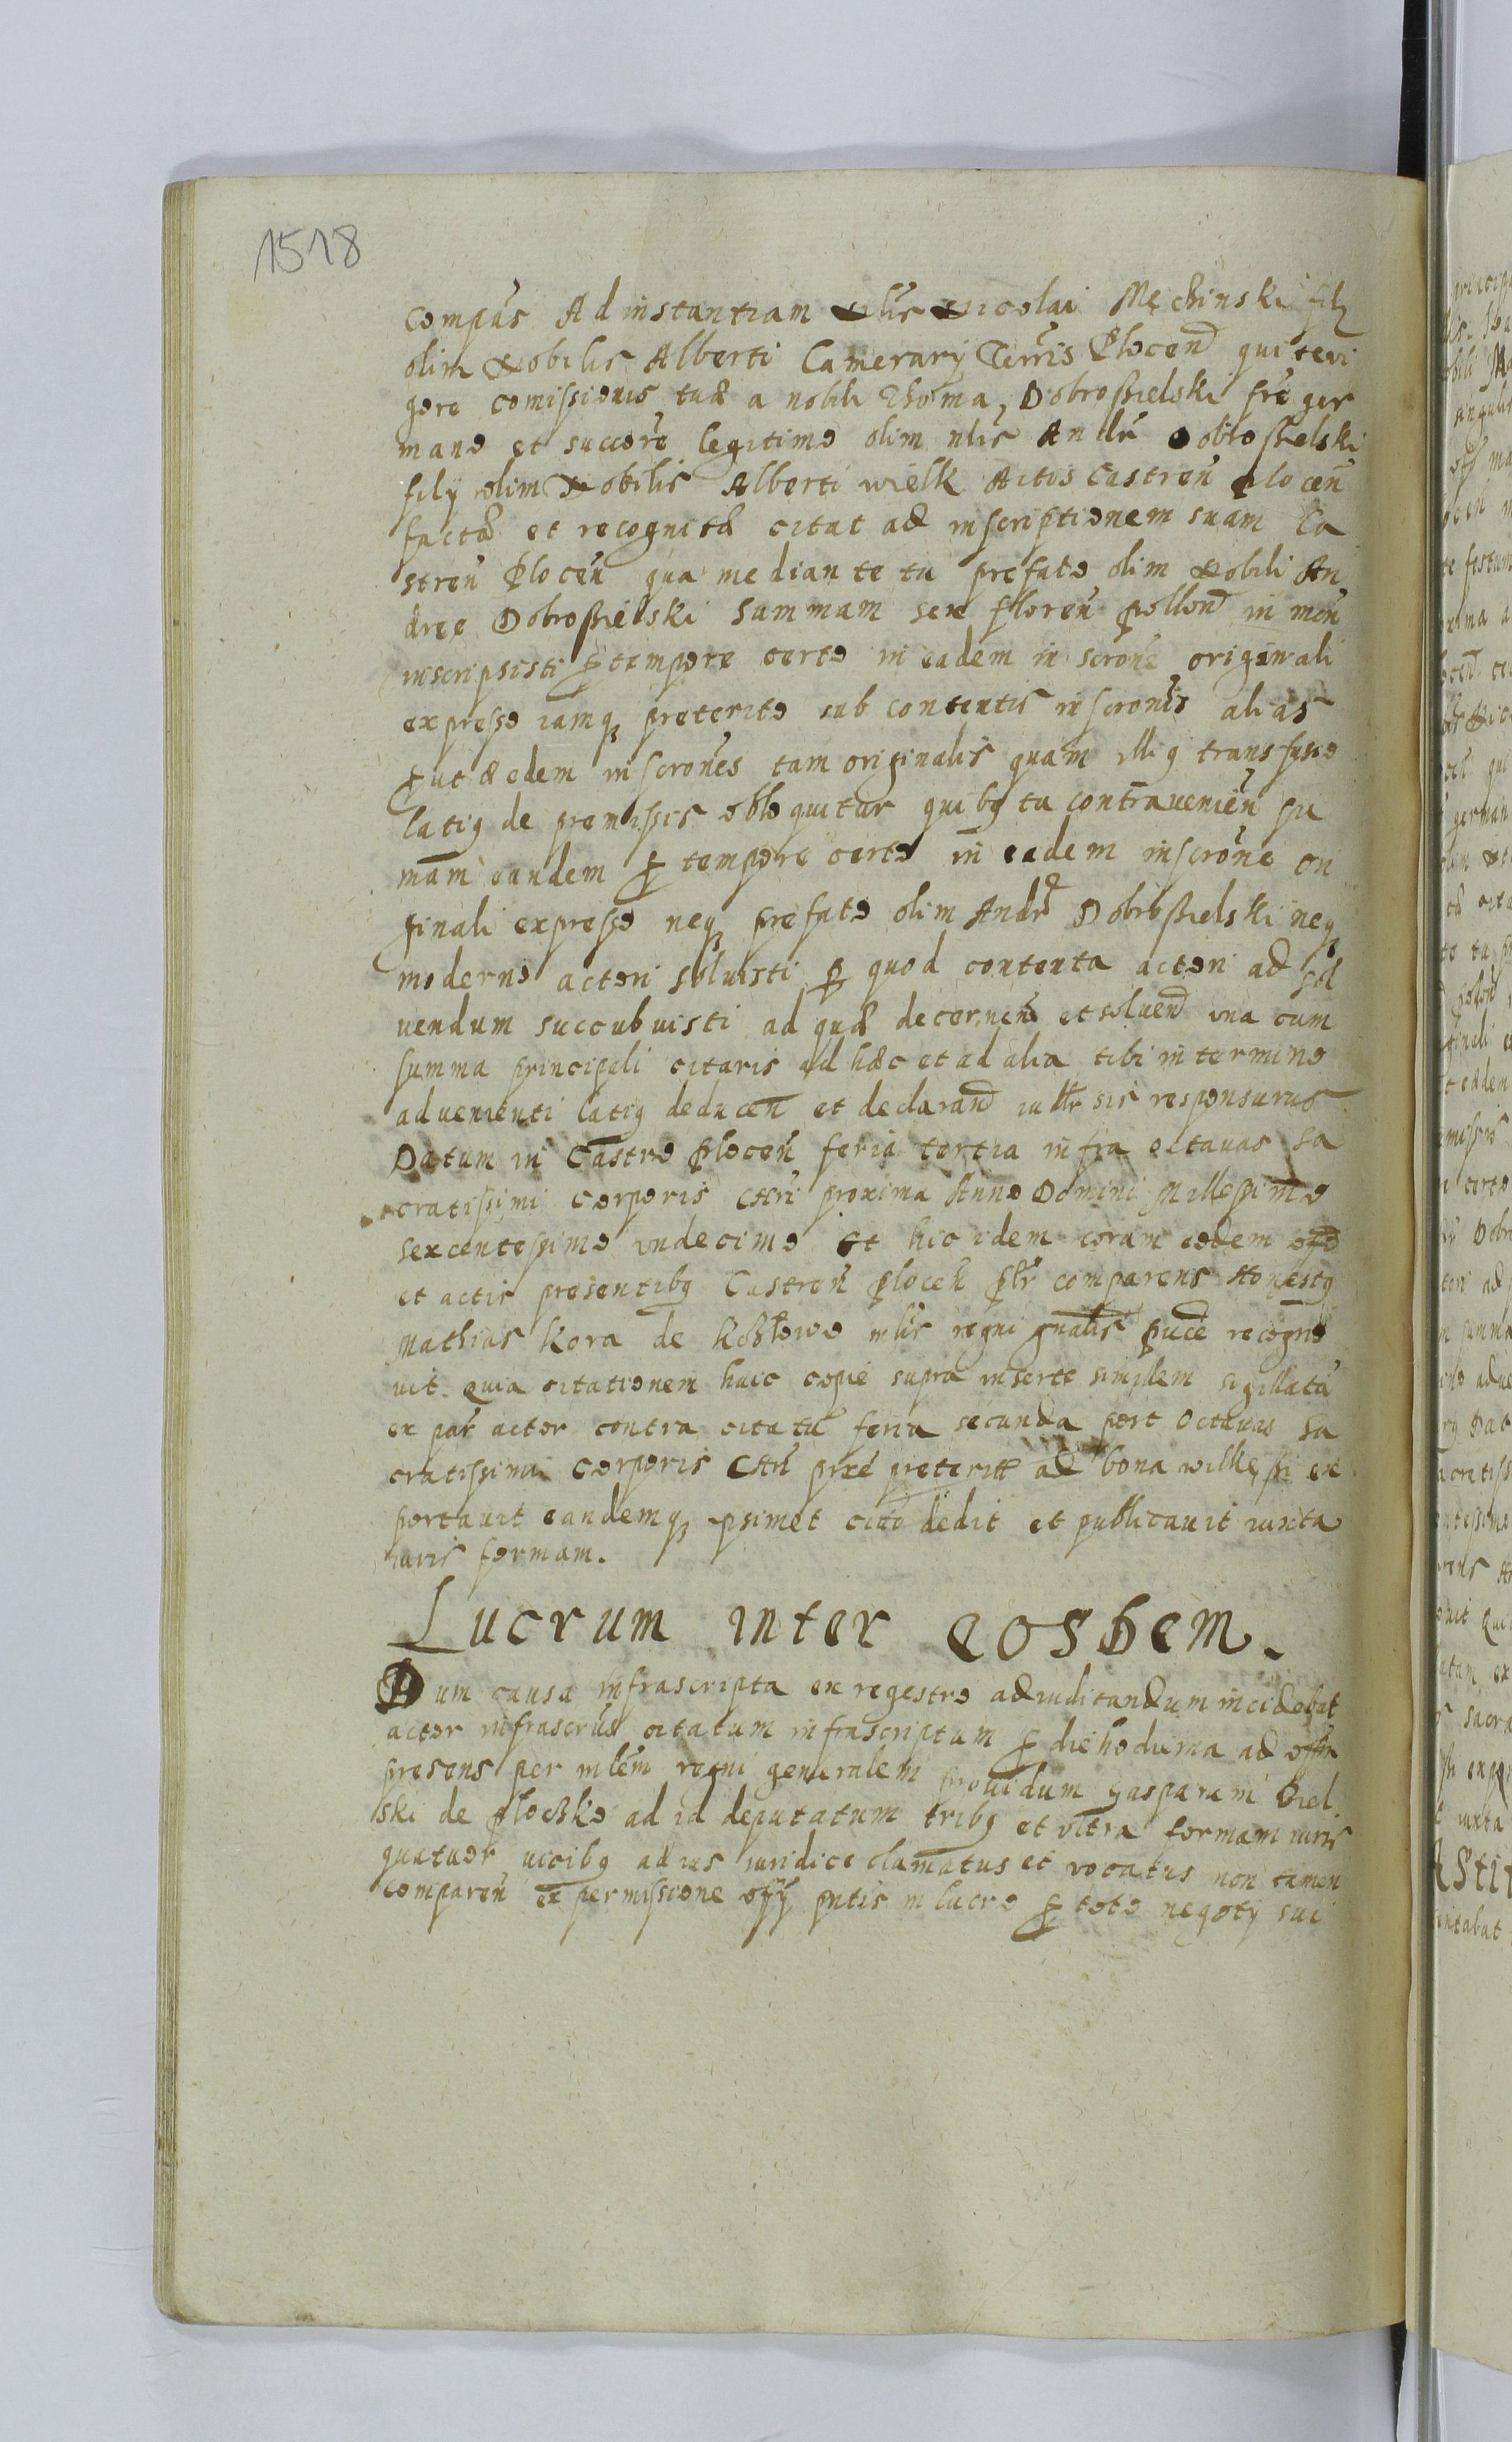 1518
compās Ad instantiam Nlis Nicolai Męchinski filÿ
olim Nobilis Alberti Camerarÿ Terris Plocen qui tevi
gore comissionis tuæ a nobili Thoma, Dobroßielski fre ger
mano et succore legitimo olim nlis Andr Dobroßielski
filÿ olim Nobilis Alberti wielk Actis Castren plocen
facto et recognito citat ad inscriptionem suam Ca
stren Plocen qua mediante tu prefato olim Nobili An
dree Dobroßielski Summam sex floren pollon in mon
inscripsisti p tempore certo in eadem inscrone originali
expresso iamq preterito sub contentis inscronis alias
put eædem inscrones tam originalis quam illiq transfusio
latiq de premissis obloquitur quibq tu contravenien su
mam eandem p tempore certo in eadem inscrone ori
ginali expresso neq prefato olim Andr Dobroßielski neq
moderno actori soluisti p quod contenta actori ad sol
uendum succubuisti ad quæ decernen et soluend vna cum
summa principali citaris ad hæc et ad alia tibi in termino
advenienti latiq deducen et declarand iudlr sis responsurus
Datum in Castro plocen feria tertia infra octauas sa
cratissimi corporis Chri proxima Anno Domini Millesimo
sexcentesimo vndecimo et hic idem coram eodem offo
et actis presentibq Castren plocen plr comparens Honestq
Mathias Kora de Koßłowo mlis regni gnalis puce recogno
uit Quia citationem huic copie supra inserte similem sigillatā
ex par actor contra citatū feria secunda post Octauas Sa
cratissimi Corporis Chri prxe preterit ad bona wilkęßi ex
portauit eandemq ipsimet citato dedit et publicauit iuxta
iuris formam.
Lucrum inter eosdem.
Dum causa infrascripta ex regestro adiudicandum incidebat
actor infrascrus citatum infrascriptum p die hodierna ad offm
presens per mlem regni generalem prouidum Gasparem Biel
ski de ploczko ad id deputatum tribq et vltra formam iuris
quatuor vocibq ad ius iuridice clamatus et vocatus non tamen
comparen ex permissione offÿ pntis in lucro p toto negotÿ sui